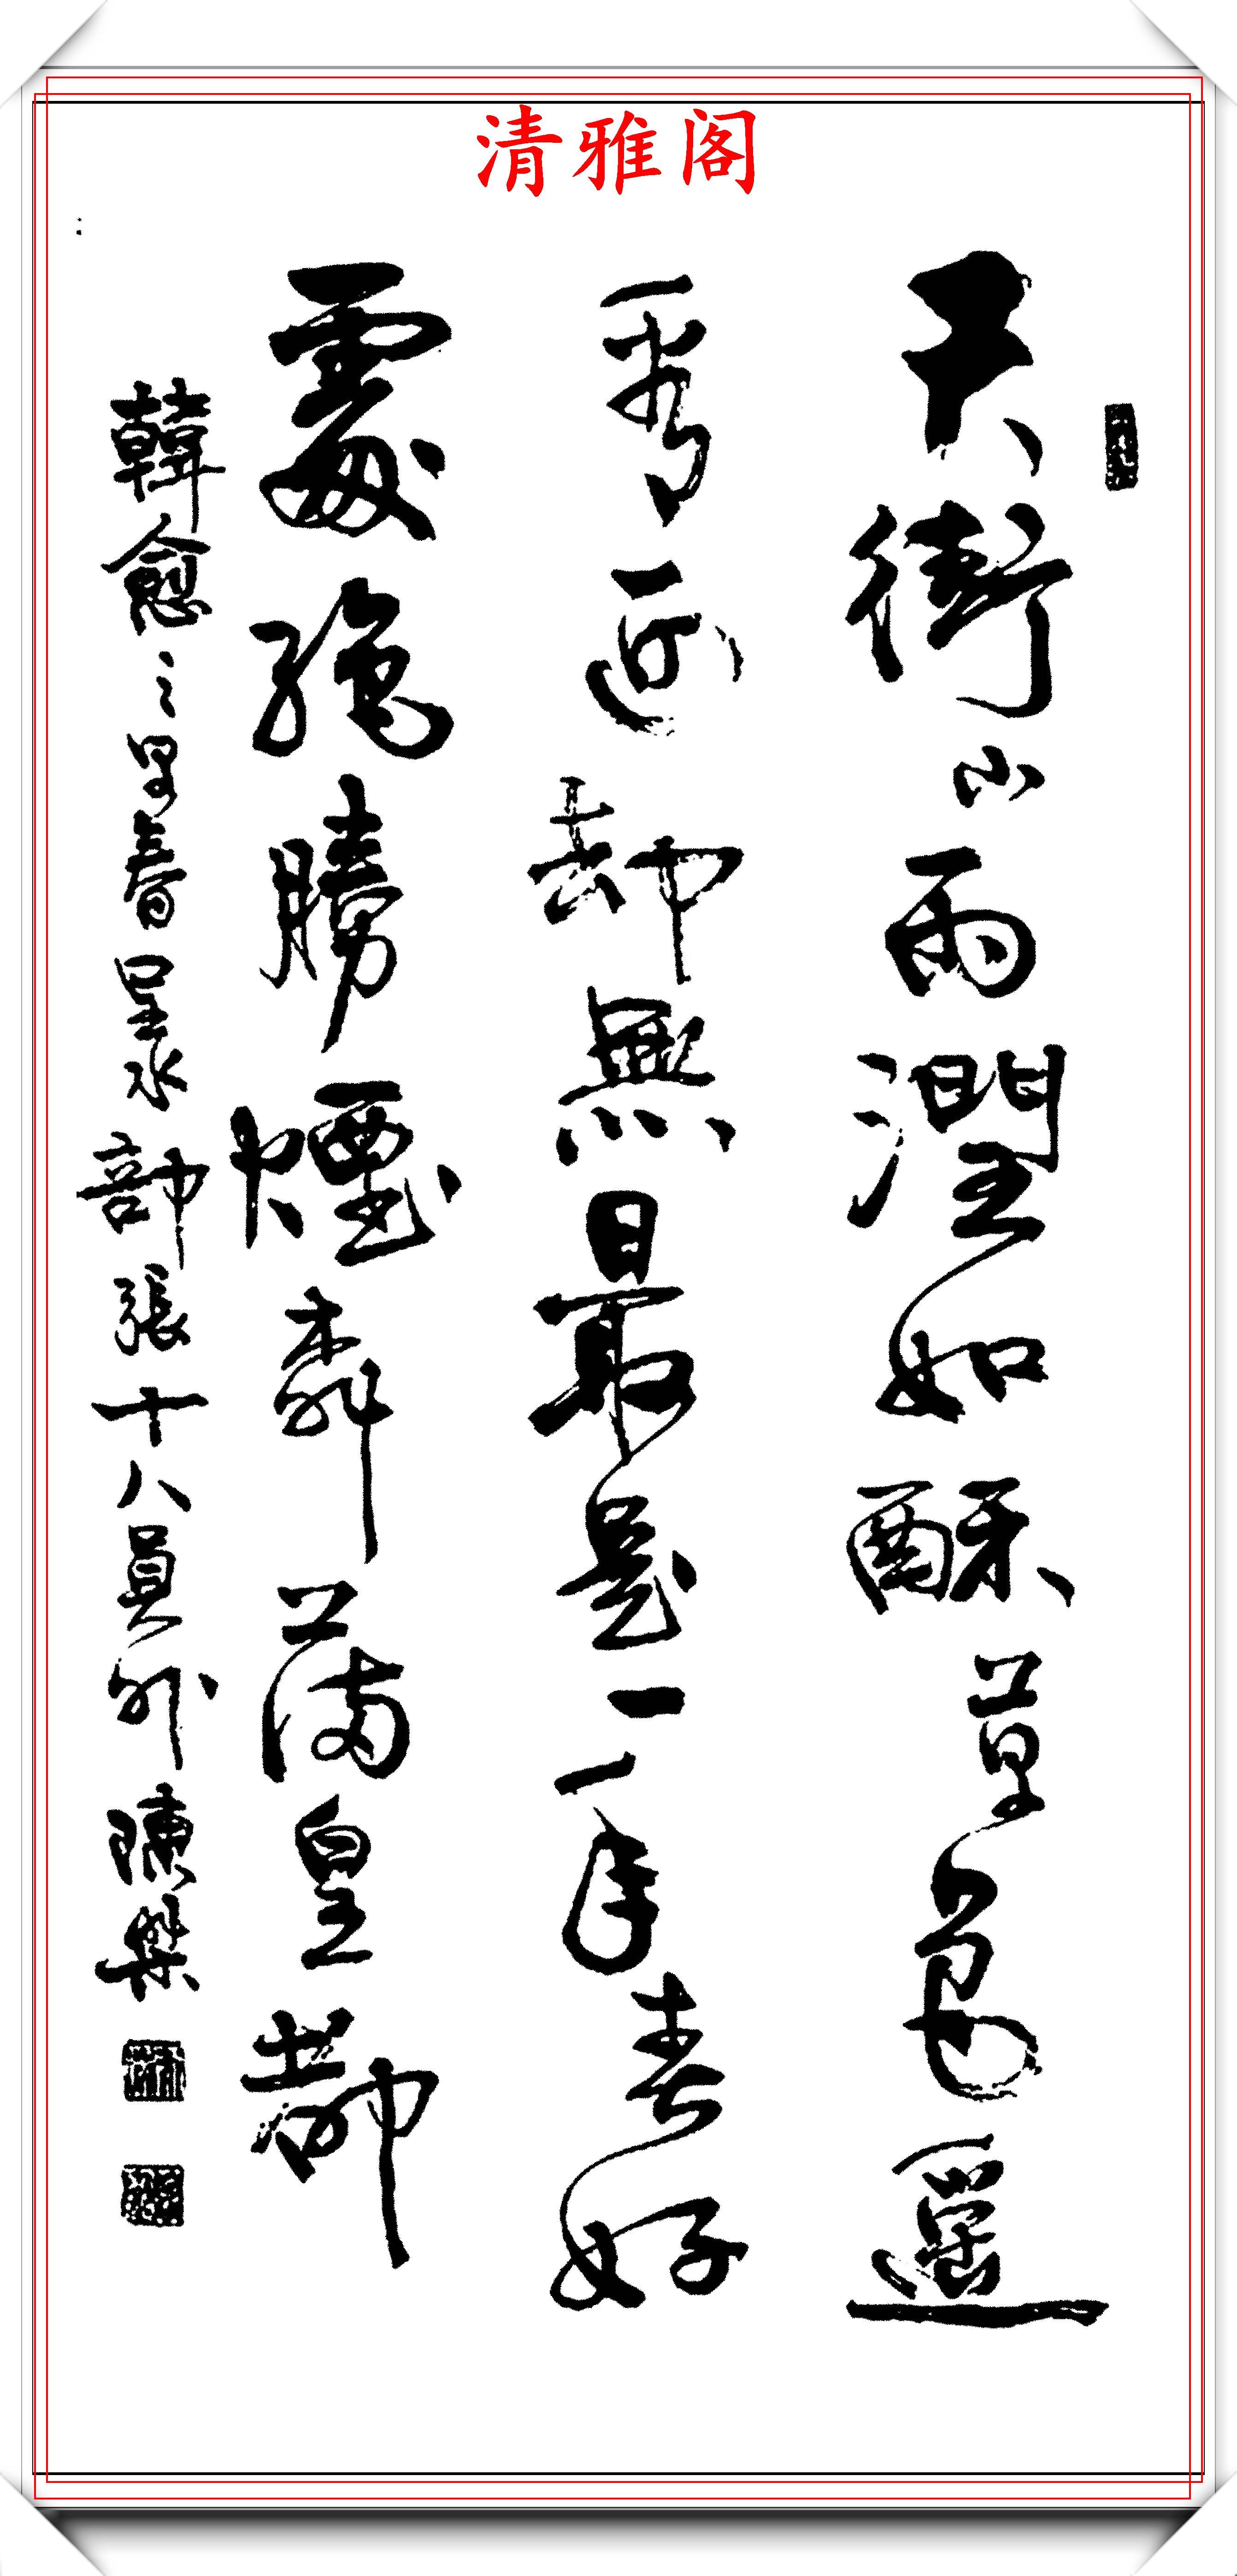 清雅阁
天街小雨潤如酥草色遥
看近却無最是一年春好
處絶勝煙柳滿皇都
韓愈之早春呈水部張十八員外 陳